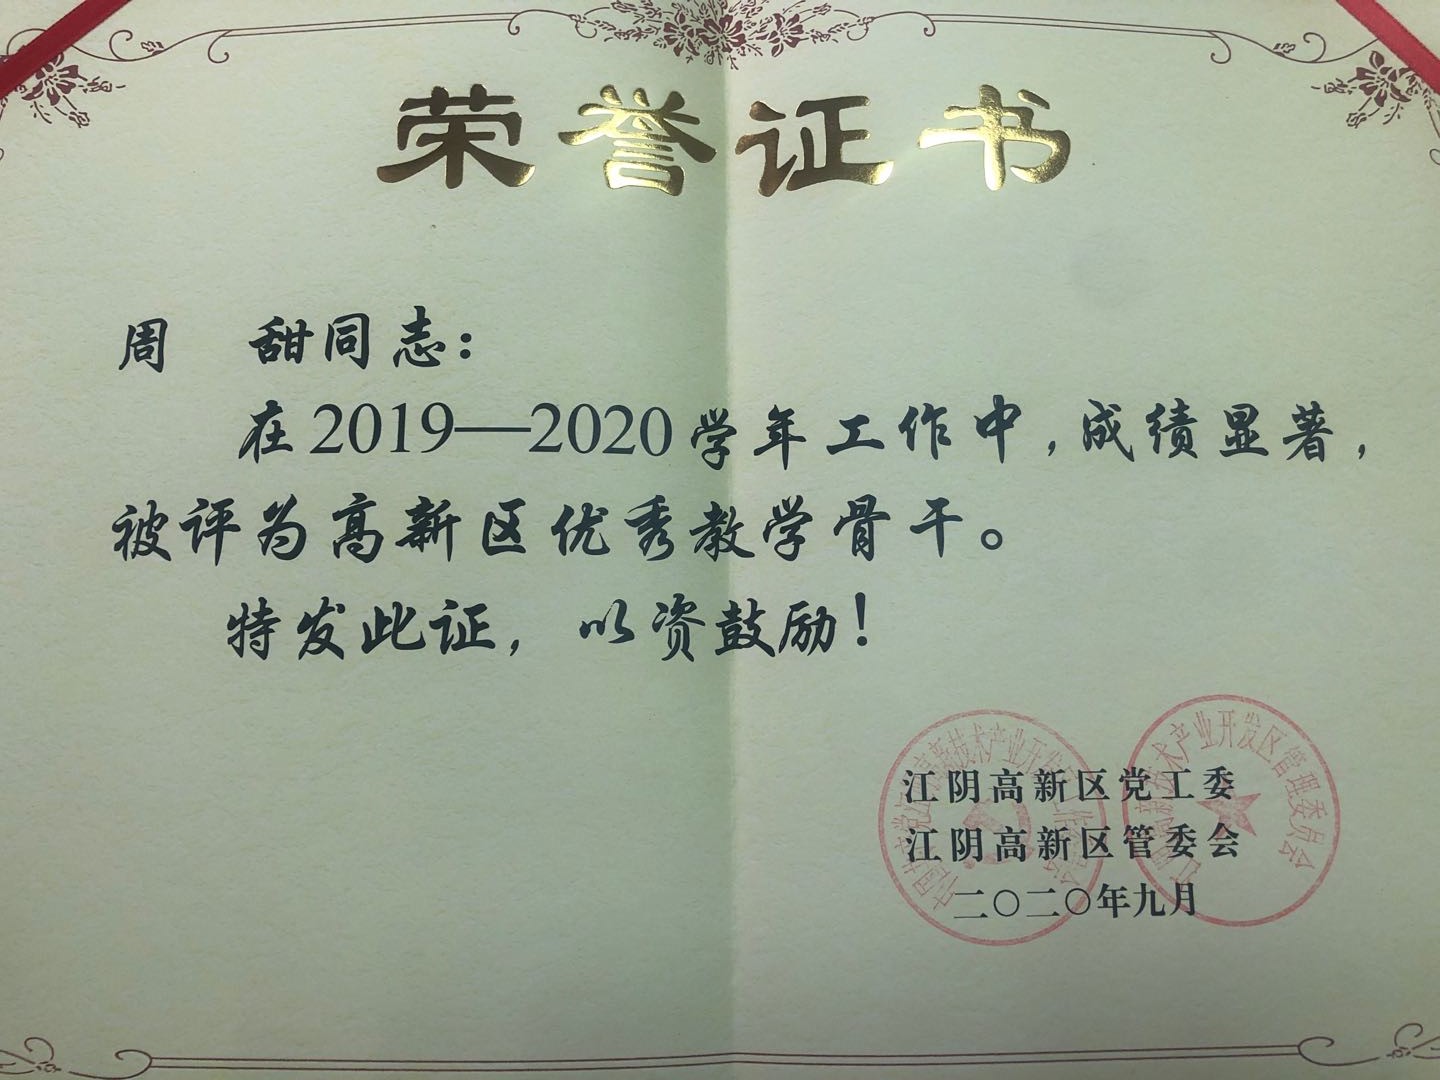 荣誉证书
周 甜同志：
在2019—2020学年工作中，成绩显著，
被评为高新区优秀教学骨干。
特发此证，以资鼓励！
江阴高新区党工委
江阴高新区管委会
二〇二〇年九月